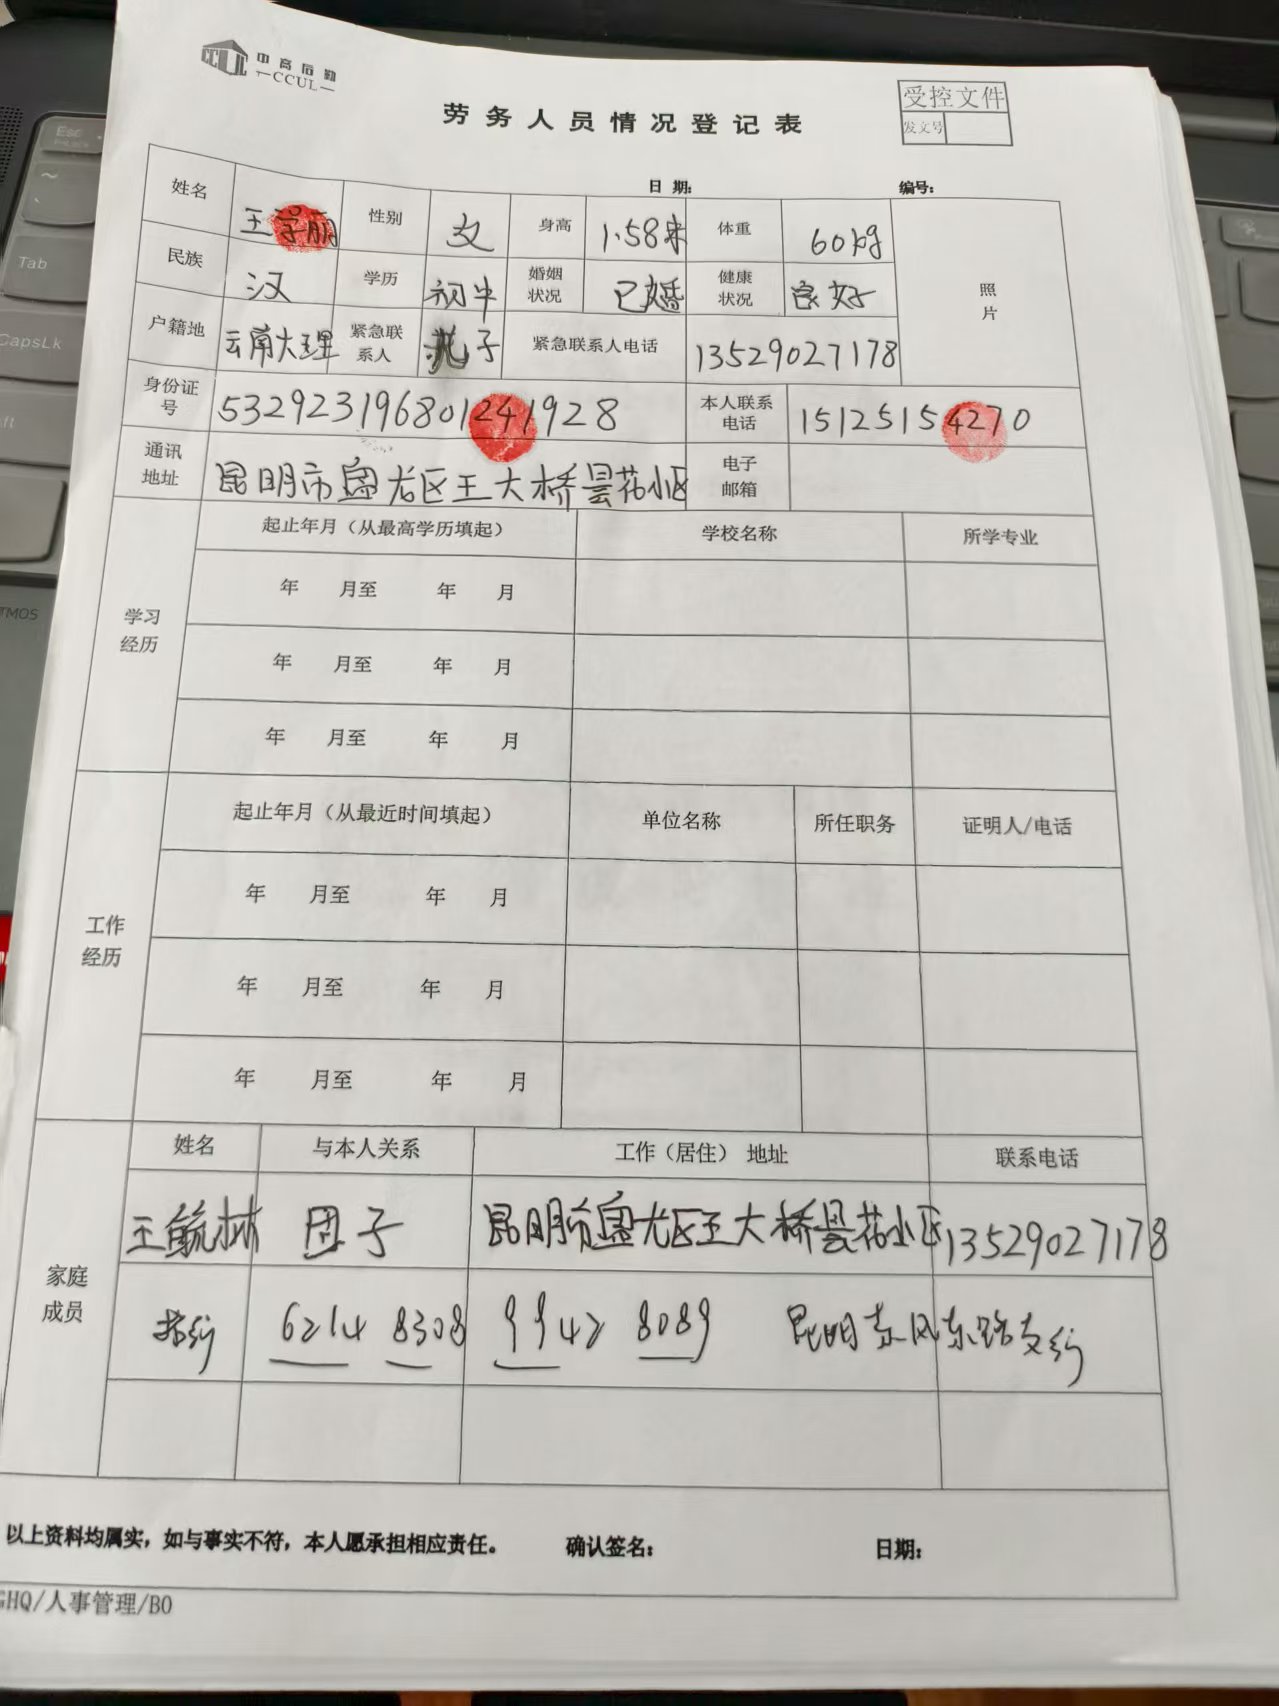 中高后勤
CCUL
受控文件
发文号
劳务人员情况登记表
日期: 编号:
姓名 王学丽 性别 女 身高 1.58米 体重 60kg 照片
民族 汉 学历 初中 婚姻状况 已婚 健康状况 良好
户籍地 云南大理 紧急联系人 子 紧急联系人电话 13529027178
身份证号 532923196801241928 本人联系电话 15125154270
通讯地址 昆明市盘龙区王大桥昙花小区 电子邮箱
学习经历 起止年月(从最高学历填起) 学校名称 所学专业
年 月至 年 月
年 月至 年 月
年 月至 年 月
工作经历 起止年月(从最近时间填起) 单位名称 所任职务 证明人/电话
年 月至 年 月
年 月至 年 月
年 月至 年 月
家庭成员 姓名 与本人关系 工作(居住) 地址 联系电话
王毓林 子 昆明市盘龙区王大桥昙花小区 13529027178
招行 6214 8308 9942 8089 昆明东风东路支行
以上资料均属实，如与事实不符，本人愿承担相应责任。 确认签名: 日期:
GHQ/人事管理/B0
Esc
Tab
CapsLk